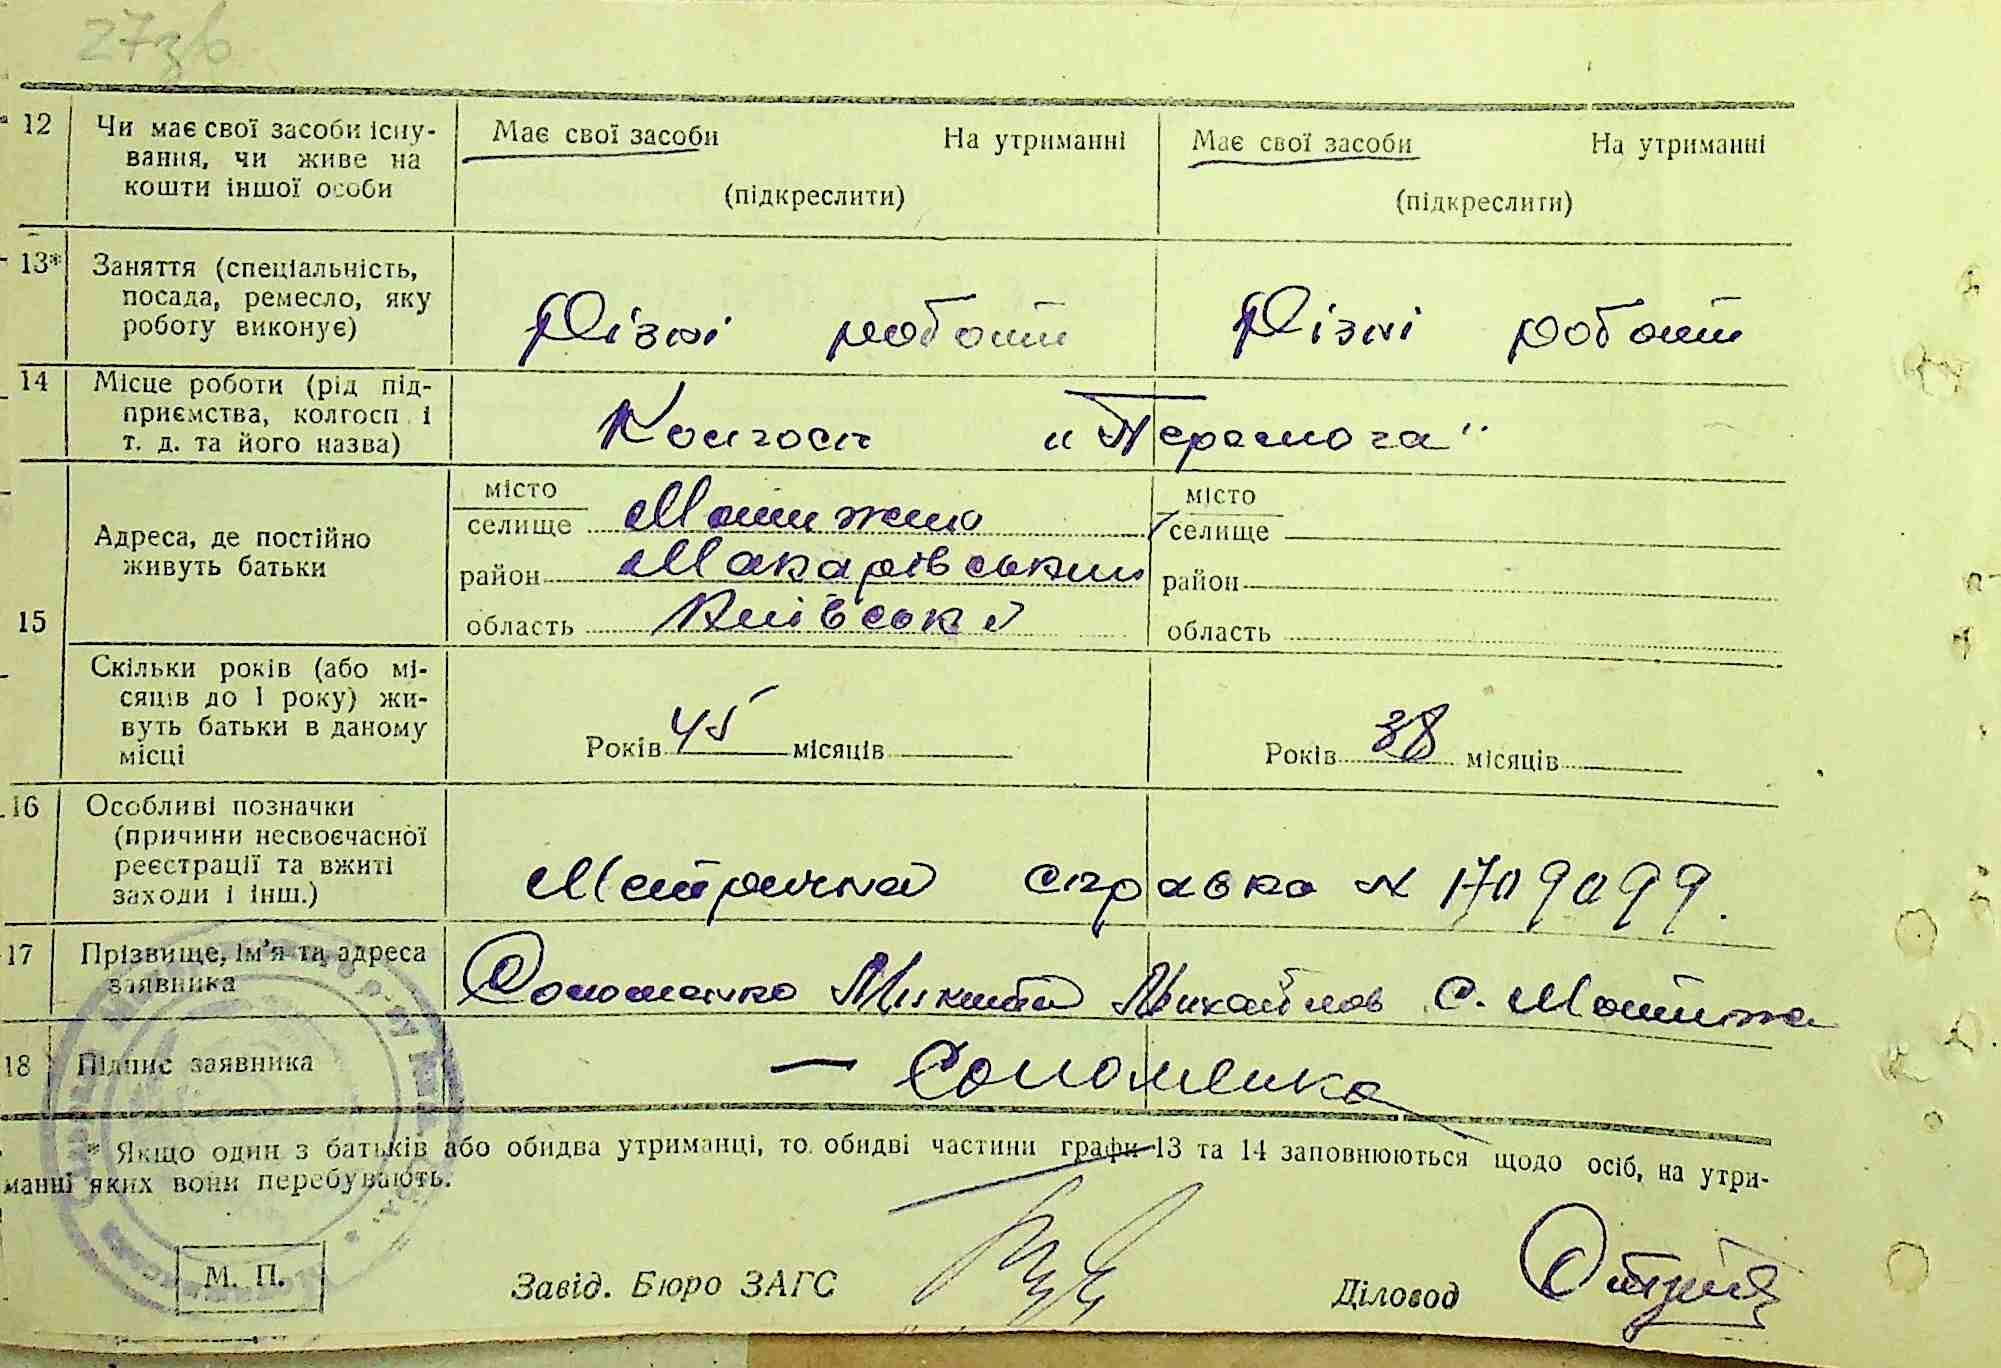 27зв
12 Чи має свої засоби існу-
вання, чи живе на
кошти іншої особи
Має свої засоби На утриманні
(підкреслити)
Має свої засоби На утриманні
(підкреслити)
13* Заняття (спеціальність,
посада, ремесло, яку
роботу виконує)
Різні роботи
Різні роботи
14 Місце роботи (рід під-
приємства, колгосп і
т. д. та його назва)
Колгосп "Перемога"
15
Адреса, де постійно
живуть батьки
місто
селище Мотижино
район Макарівський
область Київська
місто
селище
район
область
Скільки років (або мі-
сяців до 1 року) жи-
вуть батьки в даному
місці
Років 45 місяців
Років 38 місяців
16 Особливі позначки
(причини несвоєчасної
реєстрації та вжиті
заходи і інш.)
Метрична справка № 1709099.
17 Прізвище, ім'я та адреса
заявника
Соломенко Микита Михайлов с. Мотижин
18 Підпис заявника
— Соломенко
* Якщо один з батьків або обидва утриманці, то обидві частини графи 13 та 14 заповнюються щодо осіб, на утри-
манні яких вони перебувають.
М. П.
Завід. Бюро ЗАГС
Діловод